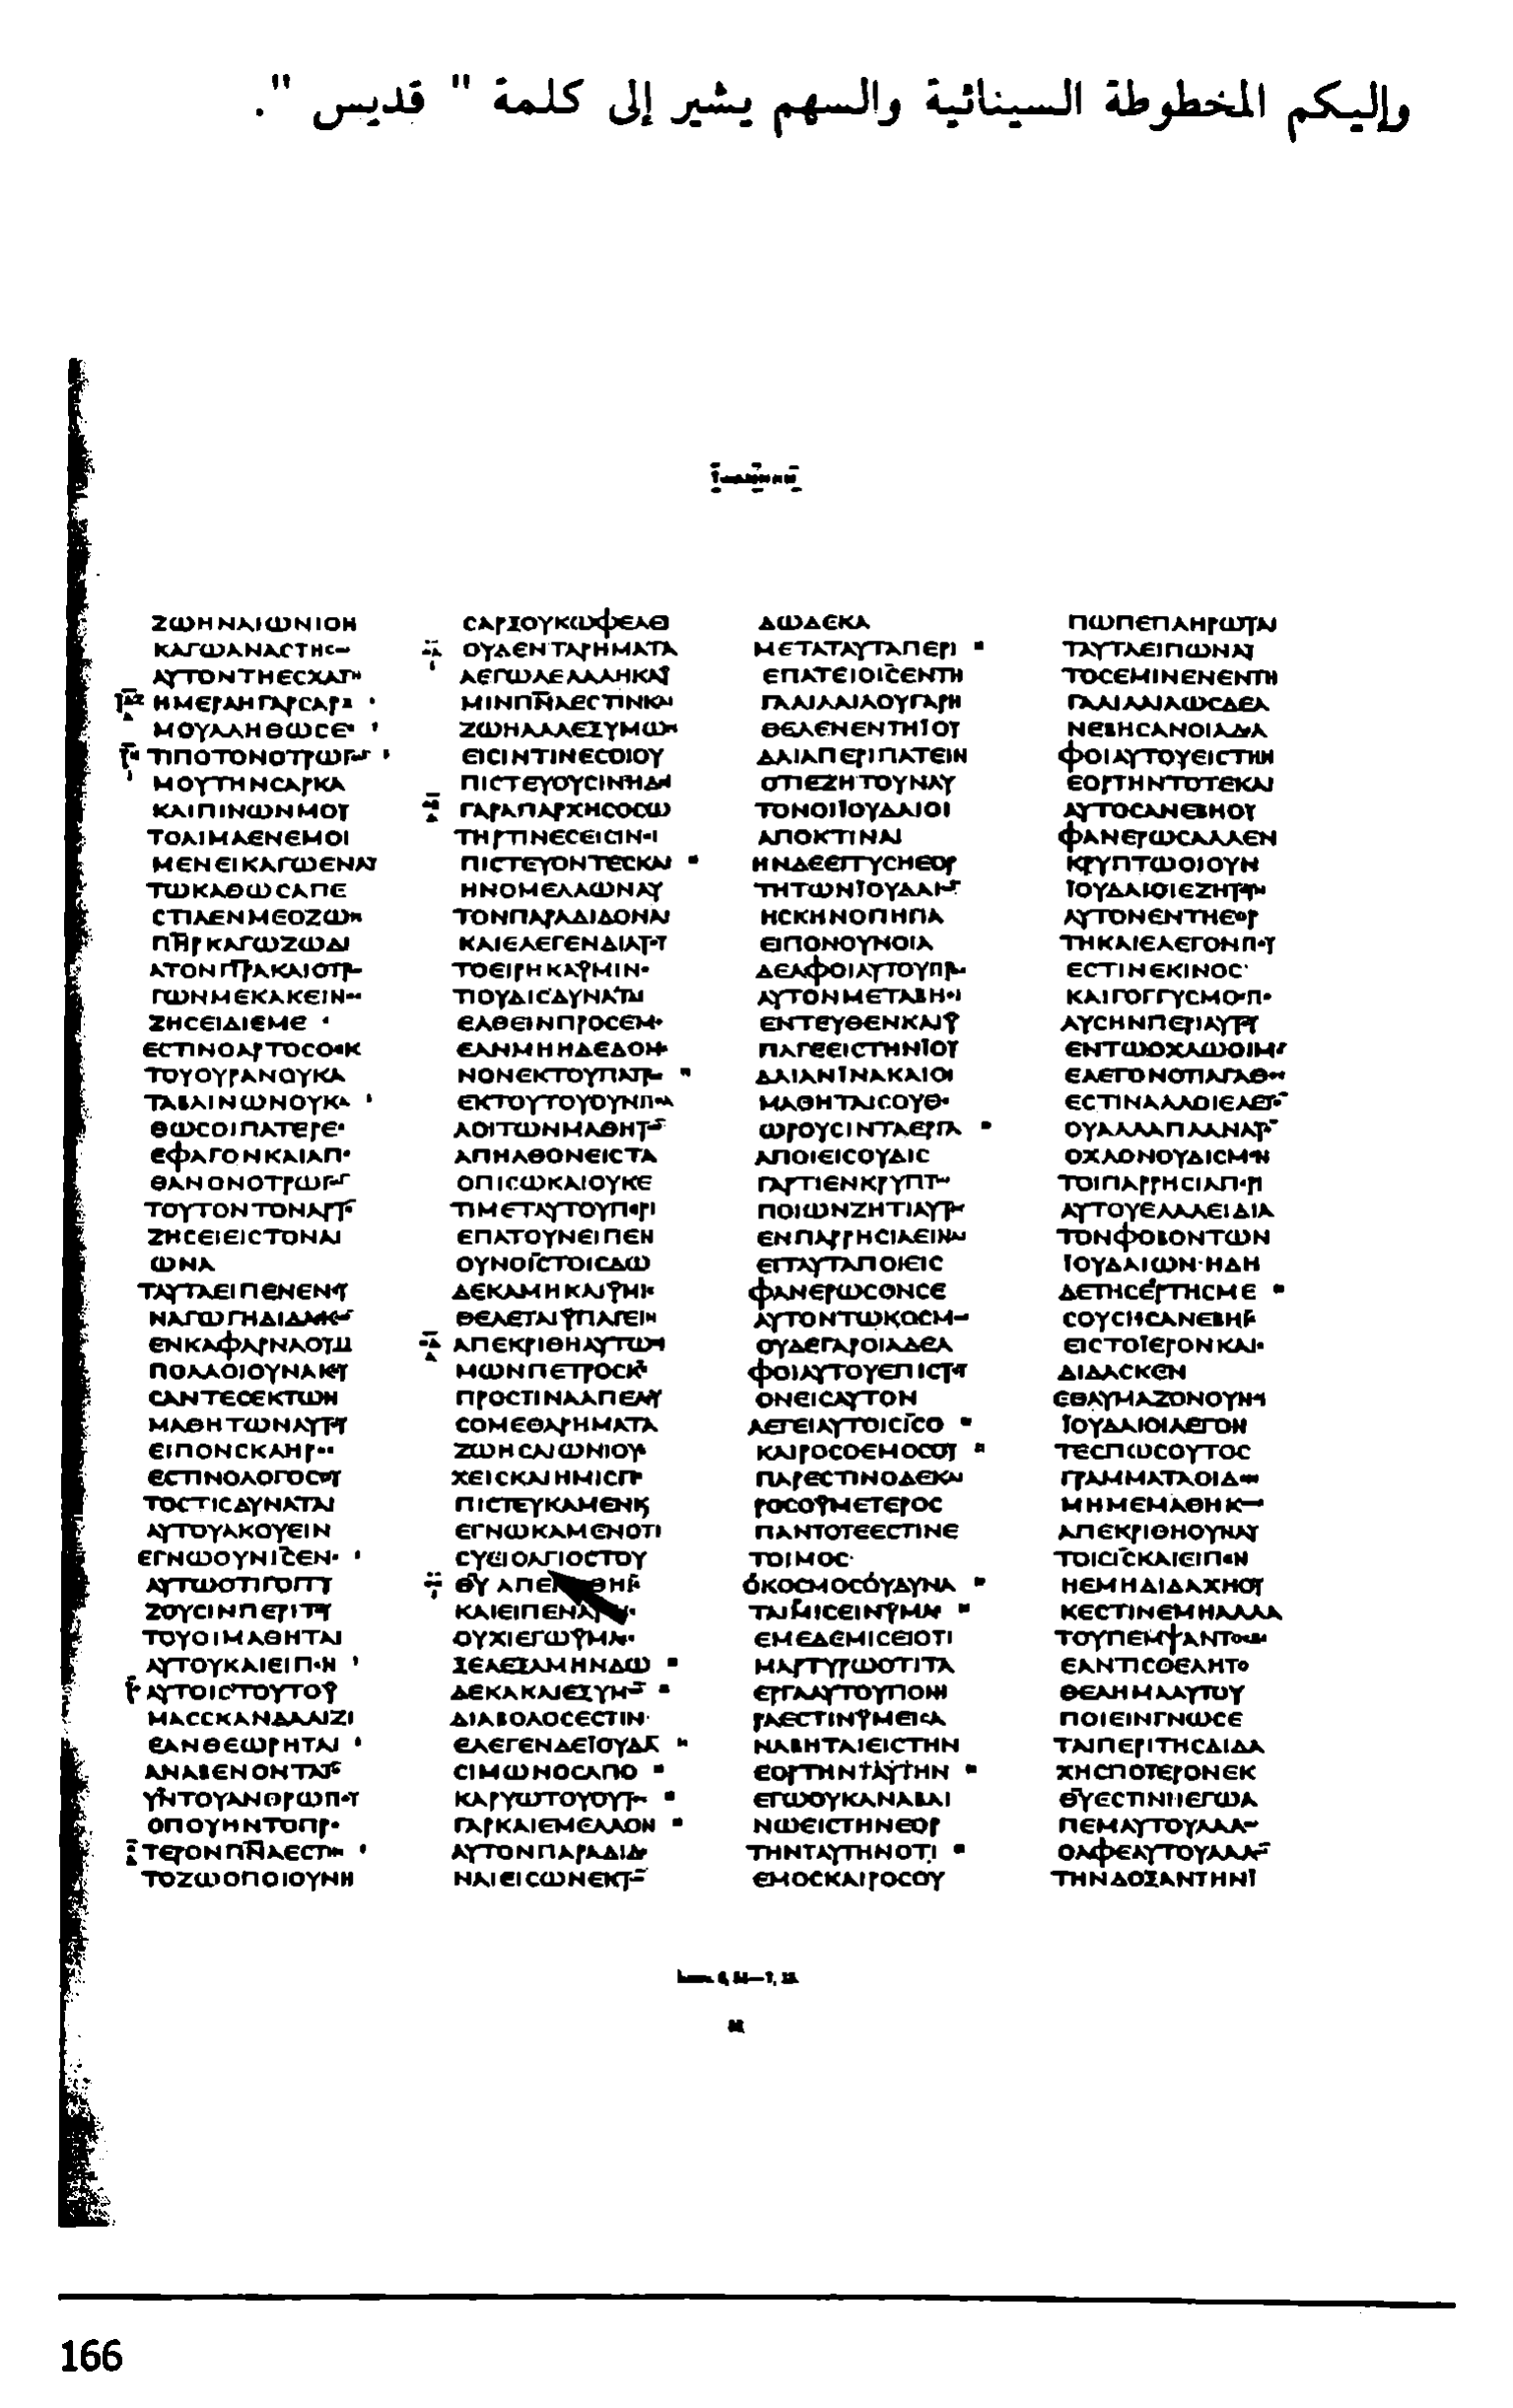 وإليكم المخطوطة السينائية والسهم يشير إلى كلمة " قديس ".
ΖΩΗΝΑΙΩΝΙΟΝ
ΚΑΓΩΑΝΑΣΤΗΣ
ΑΥΤΟΝΤΗΕΣΧΑΤΗ
ΗΜΕΡΑΗΓΑΡΣΑΡΞ
ΜΟΥΑΛΗΘΩΣΕ
ΤΙΠΟΤΟΝΟΤΡΩΓ
ΜΟΥΤΗΝΣΑΡΚΑ
ΚΑΙΠΙΝΩΝΜΟΥ
ΤΟΑΙΜΑΕΝΕΜΟΙ
ΜΕΝΕΙΚΑΓΩΕΝΑΥ
ΤΩΚΑΘΩΣΑΠΕ
ΣΤΙΛΕΝΜΕΟΖΩΝ
ΠΗΡΚΑΓΩΖΩΔΙ
ΑΤΟΝΠΡΑΚΑΙΟΤΡ
ΓΩΝΜΕΚΑΚΕΙΝ
ΖΗΣΕΙΔΙΕΜΕ
ΕΣΤΙΝΟΑΡΤΟΣΟΕΚ
ΤΟΥΟΥΡΑΝΟΥΚΑ
ΤΑΒΑΙΝΩΝΟΥΚΑ
ΘΩΣΟΙΠΑΤΕΡΕ
ΕΦΑΓΟΝΚΑΙΑΠ
ΘΑΝΟΝΟΤΡΩΓ
ΤΟΥΤΟΝΤΟΝΑΡΤ
ΖΗΣΕΙΕΙΣΤΟΝΑΙ
ΩΝΑ
ΤΑΥΤΑΕΙΠΕΝΕΝΣΥ
ΝΑΓΩΓΗΔΙΔΑΣΚ
ΕΝΚΑΦΑΡΝΑΟΥΜ
ΠΟΛΛΟΙΟΥΝΑΚΥ
ΣΑΝΤΕΣΕΚΤΩΝ
ΜΑΘΗΤΩΝΑΥΤΥ
ΕΙΠΟΝΣΚΛΗΡ
ΕΣΤΙΝΟΛΟΓΟΣΟΥ
ΤΟΣΤΙΣΔΥΝΑΤΑΙ
ΑΥΤΟΥΑΚΟΥΕΙΝ
ΕΓΝΩΟΥΝΙΣΕΝ
ΑΥΤΩΟΤΙΓΟΓΓΥ
ΖΟΥΣΙΝΠΕΡΙΤΥ
ΤΟΥΟΙΜΑΘΗΤΑΙ
ΑΥΤΟΥΚΑΙΕΙΠΕΝ
ΑΥΤΟΙΣΤΟΥΤΟΥ
ΜΑΣΣΚΑΝΔΑΛΙΖΙ
ΕΑΝΘΕΩΡΗΤΑΙ
ΑΝΑΒΕΝΟΝΤΑΤ
ΥΝΤΟΥΑΝΘΡΩΠΟΥ
ΟΠΟΥΗΝΤΟΠΡ
ΤΕΡΟΝΠΝΑΕΣΤΙΝ
ΤΟΖΩΟΠΟΙΟΥΝΗ
ΣΑΡΞΟΥΚΩΦΕΛΕΙ
ΟΥΔΕΝΤΑΡΗΜΑΤΑ
ΑΕΓΩΛΕΛΑΛΗΚΑΥ
ΜΙΝΠΝΑΕΣΤΙΝΚΑΙ
ΖΩΗΑΛΛΕΞΥΜΩΝ
ΕΙΣΙΝΤΙΝΕΣΟΙΟΥ
ΠΙΣΤΕΥΟΥΣΙΝΗΔΙ
ΓΑΡΑΠΑΡΧΗΣΟΣΩ
ΤΗΡΤΙΝΕΣΕΙΣΙΝΟΙ
ΠΙΣΤΕΥΟΝΤΕΣΚΑΙ
ΗΝΟΜΕΛΛΩΝΑΥ
ΤΟΝΠΑΡΑΔΙΔΟΝΑΙ
ΚΑΙΕΛΕΓΕΝΔΙΑΤΟΥ
ΤΟΕΙΡΗΚΑΥΜΙΝ
ΤΙΟΥΔΙΣΔΥΝΑΤΑΙ
ΕΛΘΕΙΝΠΡΟΣΕΜ
ΕΑΝΜΗΗΔΕΔΟΜ
ΝΟΝΕΚΤΟΥΠΑΤΡ
ΕΚΤΟΥΤΟΥΟΥΝΠΟΛ
ΛΟΙΤΩΝΜΑΘΗΤ
ΑΠΗΛΘΟΝΕΙΣΤΑ
ΟΠΙΣΩΚΑΙΟΥΚΕ
ΤΙΜΕΤΑΥΤΟΥΠΕΡΙ
ΕΠΑΤΟΥΝΕΙΠΕΝ
ΟΥΝΟΙΣΤΟΙΣΔΩ
ΔΕΚΑΜΗΚΑΙΥΜΙΣ
ΘΕΛΕΤΑΙΥΠΑΓΕΙΝ
ΑΠΕΚΡΙΘΗΑΥΤΩΣΙ
ΜΩΝΠΕΤΡΟΣΚ
ΠΡΟΣΤΙΝΑΑΠΕΛΕΥ
ΣΟΜΕΘΑΡΗΜΑΤΑ
ΖΩΗΣΑΙΩΝΙΟΥ
ΧΕΙΣΚΑΙΗΜΙΣΠΕ
ΠΙΣΤΕΥΚΑΜΕΝΚ
ΕΓΝΩΚΑΜΕΝΟΤΙ
ΣΥΕΙΟΑΓΙΟΣΤΟΥ
ΘΥ ΑΠΕΚΡΙΘΗ
ΚΑΙΕΙΠΕΝΑΥΤΟΙ
ΟΥΧΙΕΓΩΥΜΑ
ΞΕΛΕΞΑΜΗΝΔΩ
ΔΕΚΑΚΑΙΕΞΥΜ
ΔΙΑΒΟΛΟΣΕΣΤΙΝ
ΕΛΕΓΕΝΔΕΙΟΥΔΑ
ΣΙΜΩΝΟΣΑΠΟ
ΚΑΡΥΩΤΟΥΟΥΤ
ΓΑΡΚΑΙΕΜΕΛΛΟΝ
ΑΥΤΟΝΠΑΡΑΔΙΔ
ΝΑΙΕΙΣΩΝΕΚΤ
ΔΩΔΕΚΑ
ΜΕΤΑΤΑΥΤΑΠΕΡΙ
ΕΠΑΤΕΙΟΙΣΕΝΤΗ
ΓΑΛΙΛΑΙΑΟΥΓΑΡΗ
ΘΕΛΕΝΕΝΤΗΙΟΥ
ΔΑΙΑΠΕΡΙΠΑΤΕΙΝ
ΟΤΙΕΖΗΤΟΥΝΑΥ
ΤΟΝΟΙΙΟΥΔΑΙΟΙ
ΑΠΟΚΤΙΝΑΙ
ΗΝΔΕΕΓΓΥΣΗΕΟΡ
ΤΗΤΩΝΙΟΥΔΑΙ
ΗΣΚΗΝΟΠΗΠΑ
ΕΙΠΟΝΟΥΝΟΙΑ
ΔΕΛΦΟΙΑΥΤΟΥΠΡ
ΑΥΤΟΝΜΕΤΑΒΗΘΙ
ΕΝΤΕΥΘΕΝΚΑΙΥ
ΠΑΓΕΕΙΣΤΗΝΙΟΥ
ΔΑΙΑΝΙΝΑΚΑΙΟΙ
ΜΑΘΗΤΑΙΣΟΥΘΕ
ΩΡΟΥΣΙΝΤΑΕΡΓΑ
ΑΠΟΙΕΙΣΟΥΔΙΣ
ΓΑΡΤΙΕΝΚΡΥΠΤ
ΠΟΙΩΝΖΗΤΙΑΥΤ
ΕΝΠΑΡΡΗΣΙΑΕΙΝΑΙ
ΕΙΤΑΥΤΑΠΟΙΕΙΣ
ΦΑΝΕΡΩΣΟΝΣΕ
ΑΥΤΟΝΤΩΚΟΣΜ
ΟΥΔΕΓΑΡΟΙΑΔΕΛ
ΦΟΙΑΥΤΟΥΕΠΙΣΤΕΥ
ΟΝΕΙΣΑΥΤΟΝ
ΛΕΓΕΙΑΥΤΟΙΣΙΣΟ
ΚΑΙΡΟΣΟΕΜΟΣΟΥ
ΠΑΡΕΣΤΙΝΟΔΕΚΑΙ
ΡΟΣΟΥΜΕΤΕΡΟΣ
ΠΑΝΤΟΤΕΕΣΤΙΝΕ
ΤΟΙΜΟΣ
ΟΚΟΣΜΟΣΟΥΔΥΝΑ
ΤΑΙΜΙΣΕΙΝΥΜΑΣ
ΕΜΕΔΕΜΙΣΕΙΟΤΙ
ΜΑΡΤΥΡΩΟΤΙΤΑ
ΕΡΓΑΑΥΤΟΥΠΟΝΗ
ΡΑΕΣΤΙΝΥΜΕΙΣΑ
ΝΑΒΗΤΑΙΕΙΣΤΗΝ
ΕΟΡΤΗΝΤΑΥΤΗΝ
ΕΓΩΟΥΚΑΝΑΒΑΙ
ΝΩΕΙΣΤΗΝΕΟΡ
ΤΗΝΤΑΥΤΗΝΟΤΙ
ΕΜΟΣΚΑΙΡΟΣΟΥ
ΠΩΠΕΠΛΗΡΩΤΑΙ
ΤΑΥΤΑΕΙΠΩΝΑΥ
ΤΟΣΕΜΙΝΕΝΕΝΤΗ
ΓΑΛΙΛΑΙΑΩΣΔΕΑ
ΝΕΒΗΣΑΝΟΙΑΔΕΛ
ΦΟΙΑΥΤΟΥΕΙΣΤΗΝ
ΕΟΡΤΗΝΤΟΤΕΚΑΙ
ΑΥΤΟΣΑΝΕΒΗΟΥ
ΦΑΝΕΡΩΣΑΛΛΕΝ
ΚΡΥΠΤΩΟΙΟΥΝ
ΙΟΥΔΑΙΟΙΕΖΗΤΥΝ
ΑΥΤΟΝΕΝΤΗΕΟΡ
ΤΗΚΑΙΕΛΕΓΟΝΠΟΥ
ΕΣΤΙΝΕΚΙΝΟΣ
ΚΑΙΓΟΓΓΥΣΜΟΣΠΟ
ΛΥΣΗΝΠΕΡΙΑΥΤΥ
ΕΝΤΩΟΧΛΩΟΙΜ
ΕΛΕΓΟΝΟΤΙΑΓΑΘ
ΕΣΤΙΝΑΛΛΟΙΕΛΕΓ
ΟΥΑΛΛΑΠΛΑΝΑΤ
ΟΧΛΟΝΟΥΔΙΣΜΕΝ
ΤΟΙΠΑΡΡΗΣΙΑΠΕΡΙ
ΑΥΤΟΥΕΛΑΛΕΙΔΙΑ
ΤΟΝΦΟΒΟΝΤΩΝ
ΙΟΥΔΑΙΩΝ·ΗΔΗ
ΔΕΤΗΣΕΡΤΗΣΜΕ
ΣΟΥΣΗΣΑΝΕΒΗ
ΕΙΣΤΟΙΕΡΟΝΚΑΙ
ΔΙΔΑΣΚΕΝ
ΕΘΑΥΜΑΖΟΝΟΥΝΟΙ
ΙΟΥΔΑΙΟΙΛΕΓΟΝ
ΤΕΣΠΩΣΟΥΤΟΣ
ΓΡΑΜΜΑΤΑΟΙΔΕΝ
ΜΗΜΕΜΑΘΗΚ
ΑΠΕΚΡΙΘΗΟΥΝΑΥ
ΤΟΙΣΙΣΚΑΙΕΙΠΕΝ
ΗΕΜΗΔΙΔΑΧΗΟΥ
ΚΕΣΤΙΝΕΜΗΑΛΛΑ
ΤΟΥΠΕΜΨΑΝΤΟΣΜΕ
ΕΑΝΤΙΣΘΕΛΗΤΟ
ΘΕΛΗΜΑΑΥΤΟΥ
ΠΟΙΕΙΝΓΝΩΣΕ
ΤΑΙΠΕΡΙΤΗΣΔΙΔΑ
ΧΗΣΠΟΤΕΡΟΝΕΚ
ΘΥΕΣΤΙΝΗΕΓΩΑ
ΠΕΜΑΥΤΟΥΛΑΛ
ΟΑΦΕΑΥΤΟΥΛΑΛ
ΤΗΝΔΟΞΑΝΤΗΝΙ
166